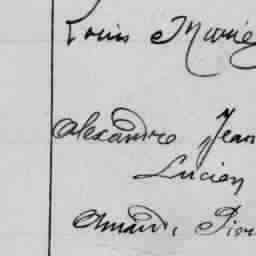 Louis Marie
Alexandre Jean
Lucien
Amand, Pier